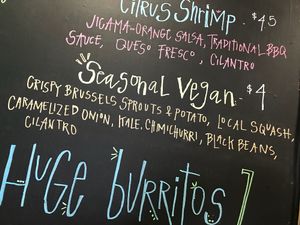 Citrus Shrimp · $45
JICAMA-ORANGE SALSA, TRADITIONAL BBQ
SAUCE, QUESO FRESCO, CILANTRO
Seasonal Vegan · $4
CRISPY BRUSSELS SPROUTS & POTATO, LOCAL SQUASH,
CARAMELIZED ONION, KALE, CHIMICHURRI, BLACK BEANS,
CILANTRO
HUGE BURRITOS